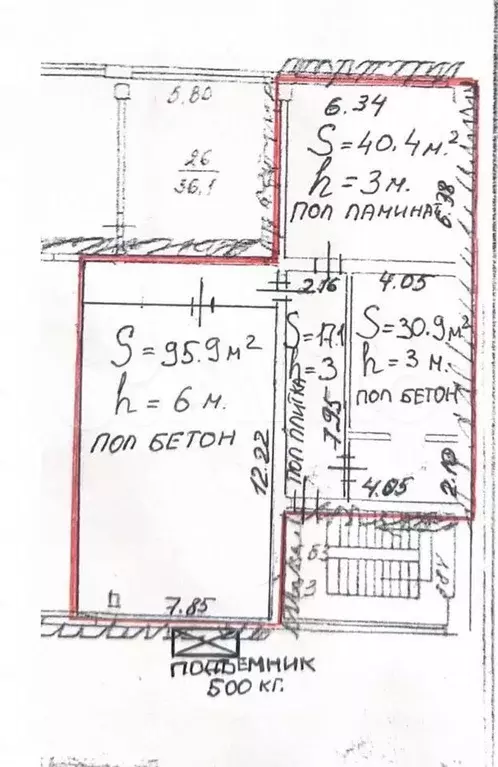 5.80
26
36,1
6.34
S=40.4м.²
h=3м.
ПОЛ ЛАМИНАТ
6.38
2.16
4.05
S=95.9м²
h=6м.
ПОЛ БЕТОН
12.22
7.85
S=17.1
h=3
ПОЛ ПЛИТКА
7.95
S=30.9м²
h=3м.
ПОЛ БЕТОН
4.05
2.10
ПОДЪЕМНИК
500 КГ.